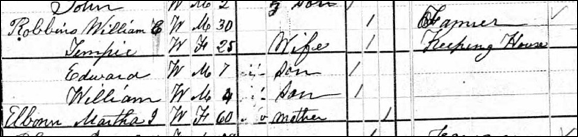 John W M 2 Son
Robbins William E W M 30 1 Farmer
Tempie W F 25 Wife 1 Keeping House
Edward W M 7 Son 1
William W M 4 Son 1
Elborn Martha J W F 60 Mother 1